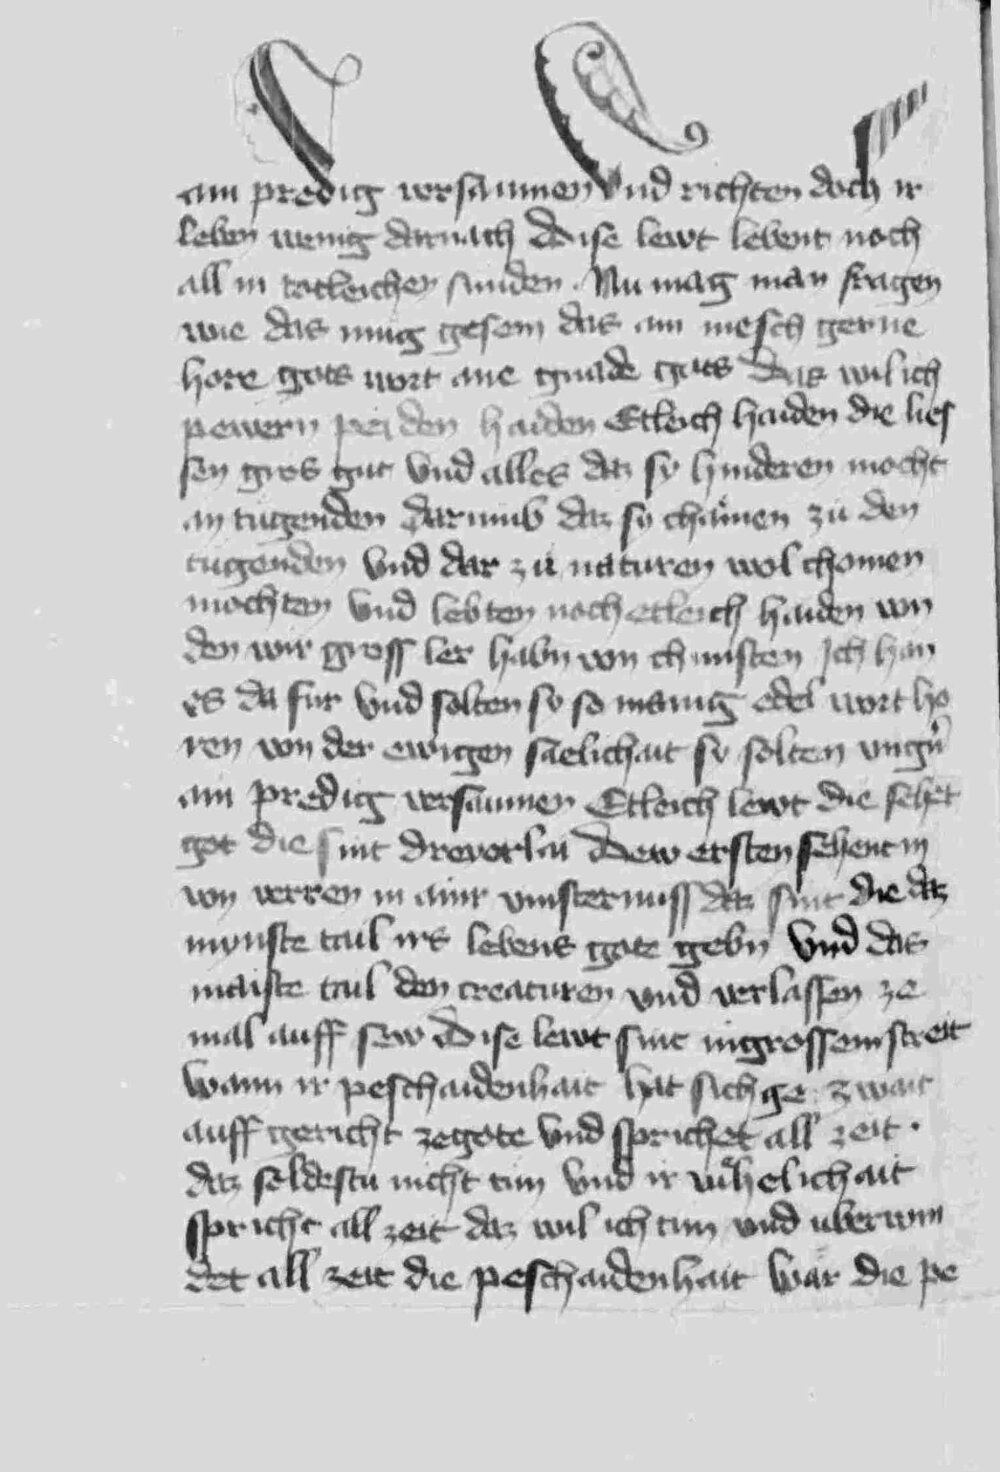 ain predig versaumen Vnd richten doch ir
leben wenig darnach Dise lewt lebent noch
all in totleichen sunden · Nu mag man fragen
wie das mug gesein das ain mesch gerne
hore gots wort ane gnade gots Das wil ich
pewern pei den haiden Etleich haiden die lies
sen gros gut Vnd alles daz sy hinderen mocht
an tugenden Darumb daz sy chämen zu den
tugenden Vnd dar zu naturen wol chomen
mochten Vnd lebten noch etleich haiden von
den wir gross ler habn von chunsten Ich han
es da fur Vnd solten sy so manig edel wort ho
ren von der ewigen saelichait sy solten vngern
ain predig versaumen Etleich lewt die sehet
got die sint dreyerlai Dew ersten sehent in
von verren in ainr vinsternuss daz sint die daz
mynste tail irs lebens gote gebn Vnd das
maiste tail den creaturen vnd verlassen ze
mal auff sew Dise lewt sint in grossem streit
Wann ir peschaidenhait hat sich ge zwait
auff gericht ze gote Vnd sprichet all zeit ·
daz soldestu nicht tun Vnd ir vihelichait
spricht all zeit daz wil ich tun vnd uberwin
det all zeit die peschaidenhait Wär die pe